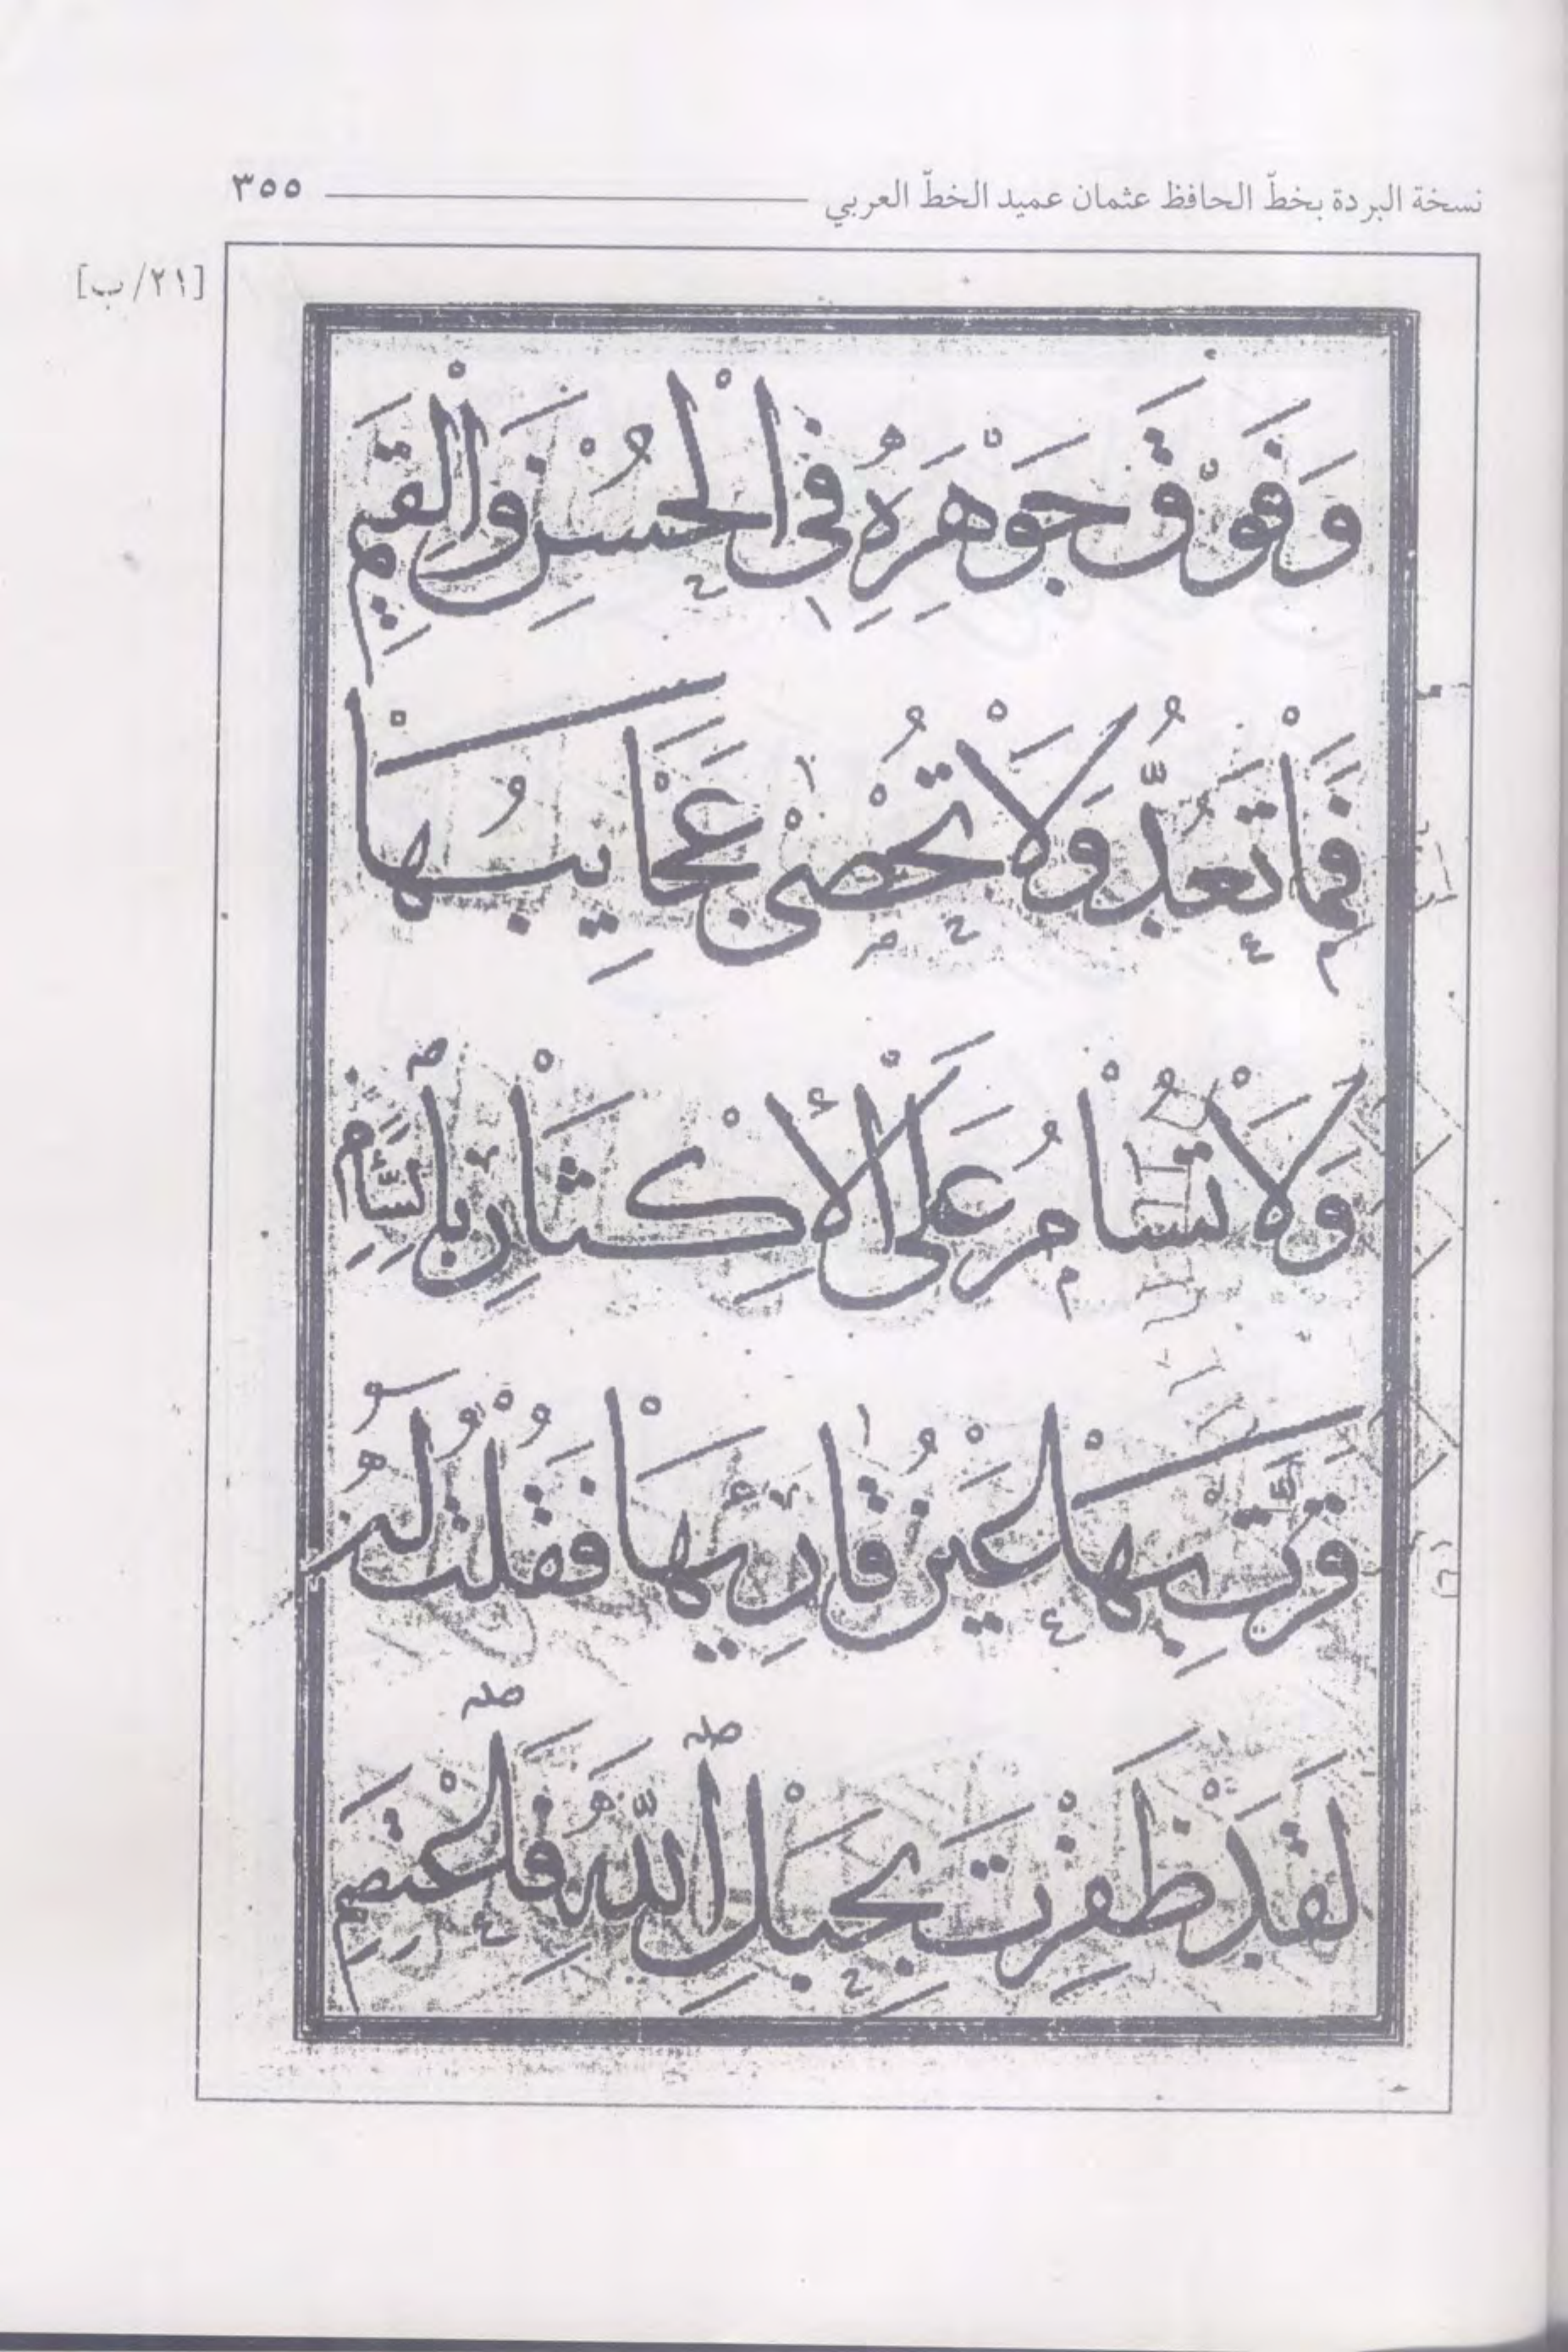 نسخة البردة بخطّ الحافظ عثمان عميد الخطّ العربي ٣٥٥
[٢١/ب]
وَفَوْقَ جَوْهَرِهِ فِى الْحُسْنِ وَالْقِيَمِ
فَمَا تُعَدُّ وَلَا تُحْصٰى عَجَايِبُهَا
وَلَا تُسَامُ عَلَى الْاِكْثَارِ بِالسَّأَمِ
قَرَّتْ بِهَا عَيْنُ قَارِيهَا فَقُلْتُ لَهُ
لَقَدْ ظَفِرْتَ بِحَبْلِ اللّٰهِ فَاعْتَصِمِ